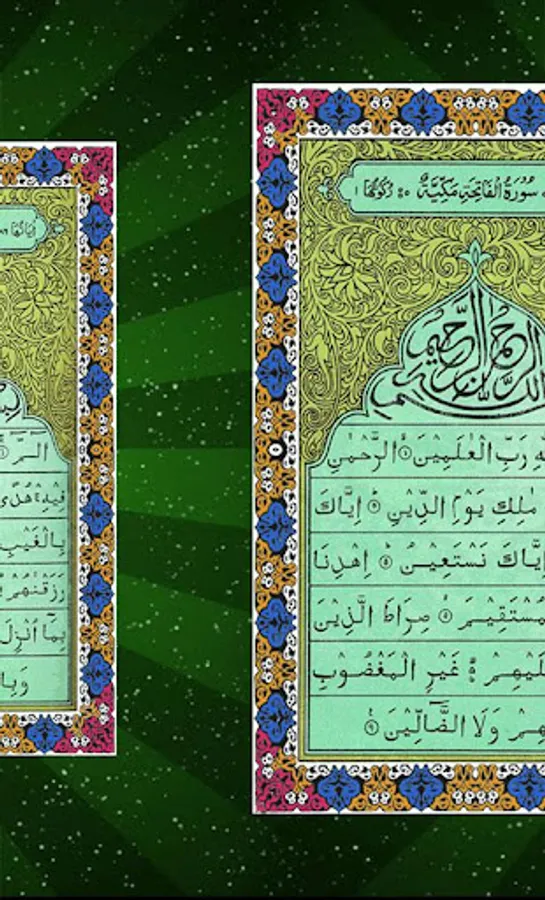 سُوْرَةُ الْفَاتِحَةِ مَكِّيَّةٌ ٥ رُكُوْعُهَا ١
الرَّحْمٰنِ الرَّحِيْمِ
رَبِّ الْعٰلَمِيْنَ ۝١ الرَّحْمٰنِ
مٰلِكِ يَوْمِ الدِّيْنِ ۝ اِيَّاكَ
اِيَّاكَ نَسْتَعِيْنُ ۝ اِهْدِنَا
صِرَاطَ الَّذِيْنَ
غَيْرِ الْمَغْضُوْبِ
وَلَا الضَّآلِّيْنَ ۝
اٰيَاتُهَا
الٓمّٓ ۝
فِيْهِ هُدًى
بِالْغَيْبِ
رَزَقْنٰهُمْ
بِمَآ اُنْزِلَ